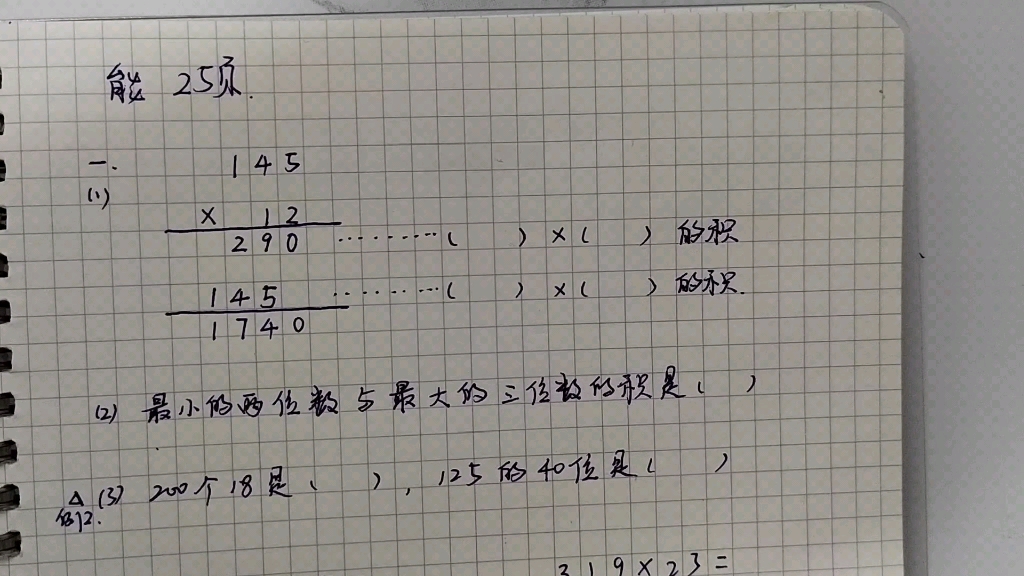 能 25页.
一. 145
(1)
× 12
290 ········( )×( )的积
145 ········( )×( )的积.
1740
(2) 最小的两位数与最大的三位数的积是( )
△(3) 200个18是( ), 125的40位是( )
例2.
319×23=